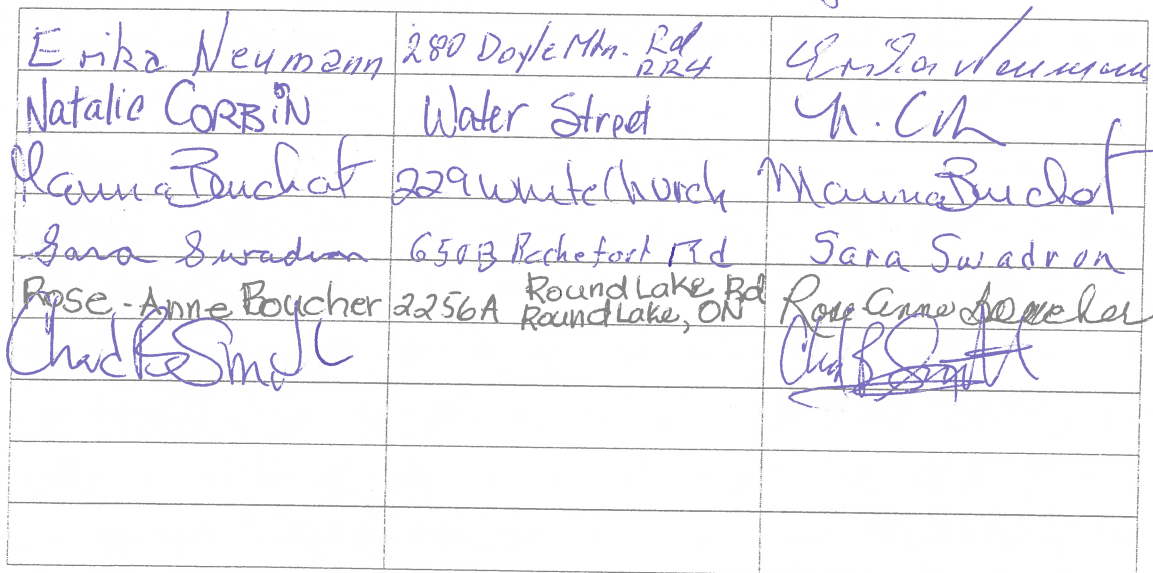 Erika Neumann 280 Doyle Mtn. Rd RR4 Erika Neumann
Natalie CORBiN Water Street N. Co
Mauna Buchat 229 White Church Mauna Buchat
Sara Swadron 650B Rochefort Rd Sara Swadron
Rose-Anne Boucher 2256A Round Lake Rd Round Lake, ON Rose Anne Boucher
Chad B Smith Chad B Smith